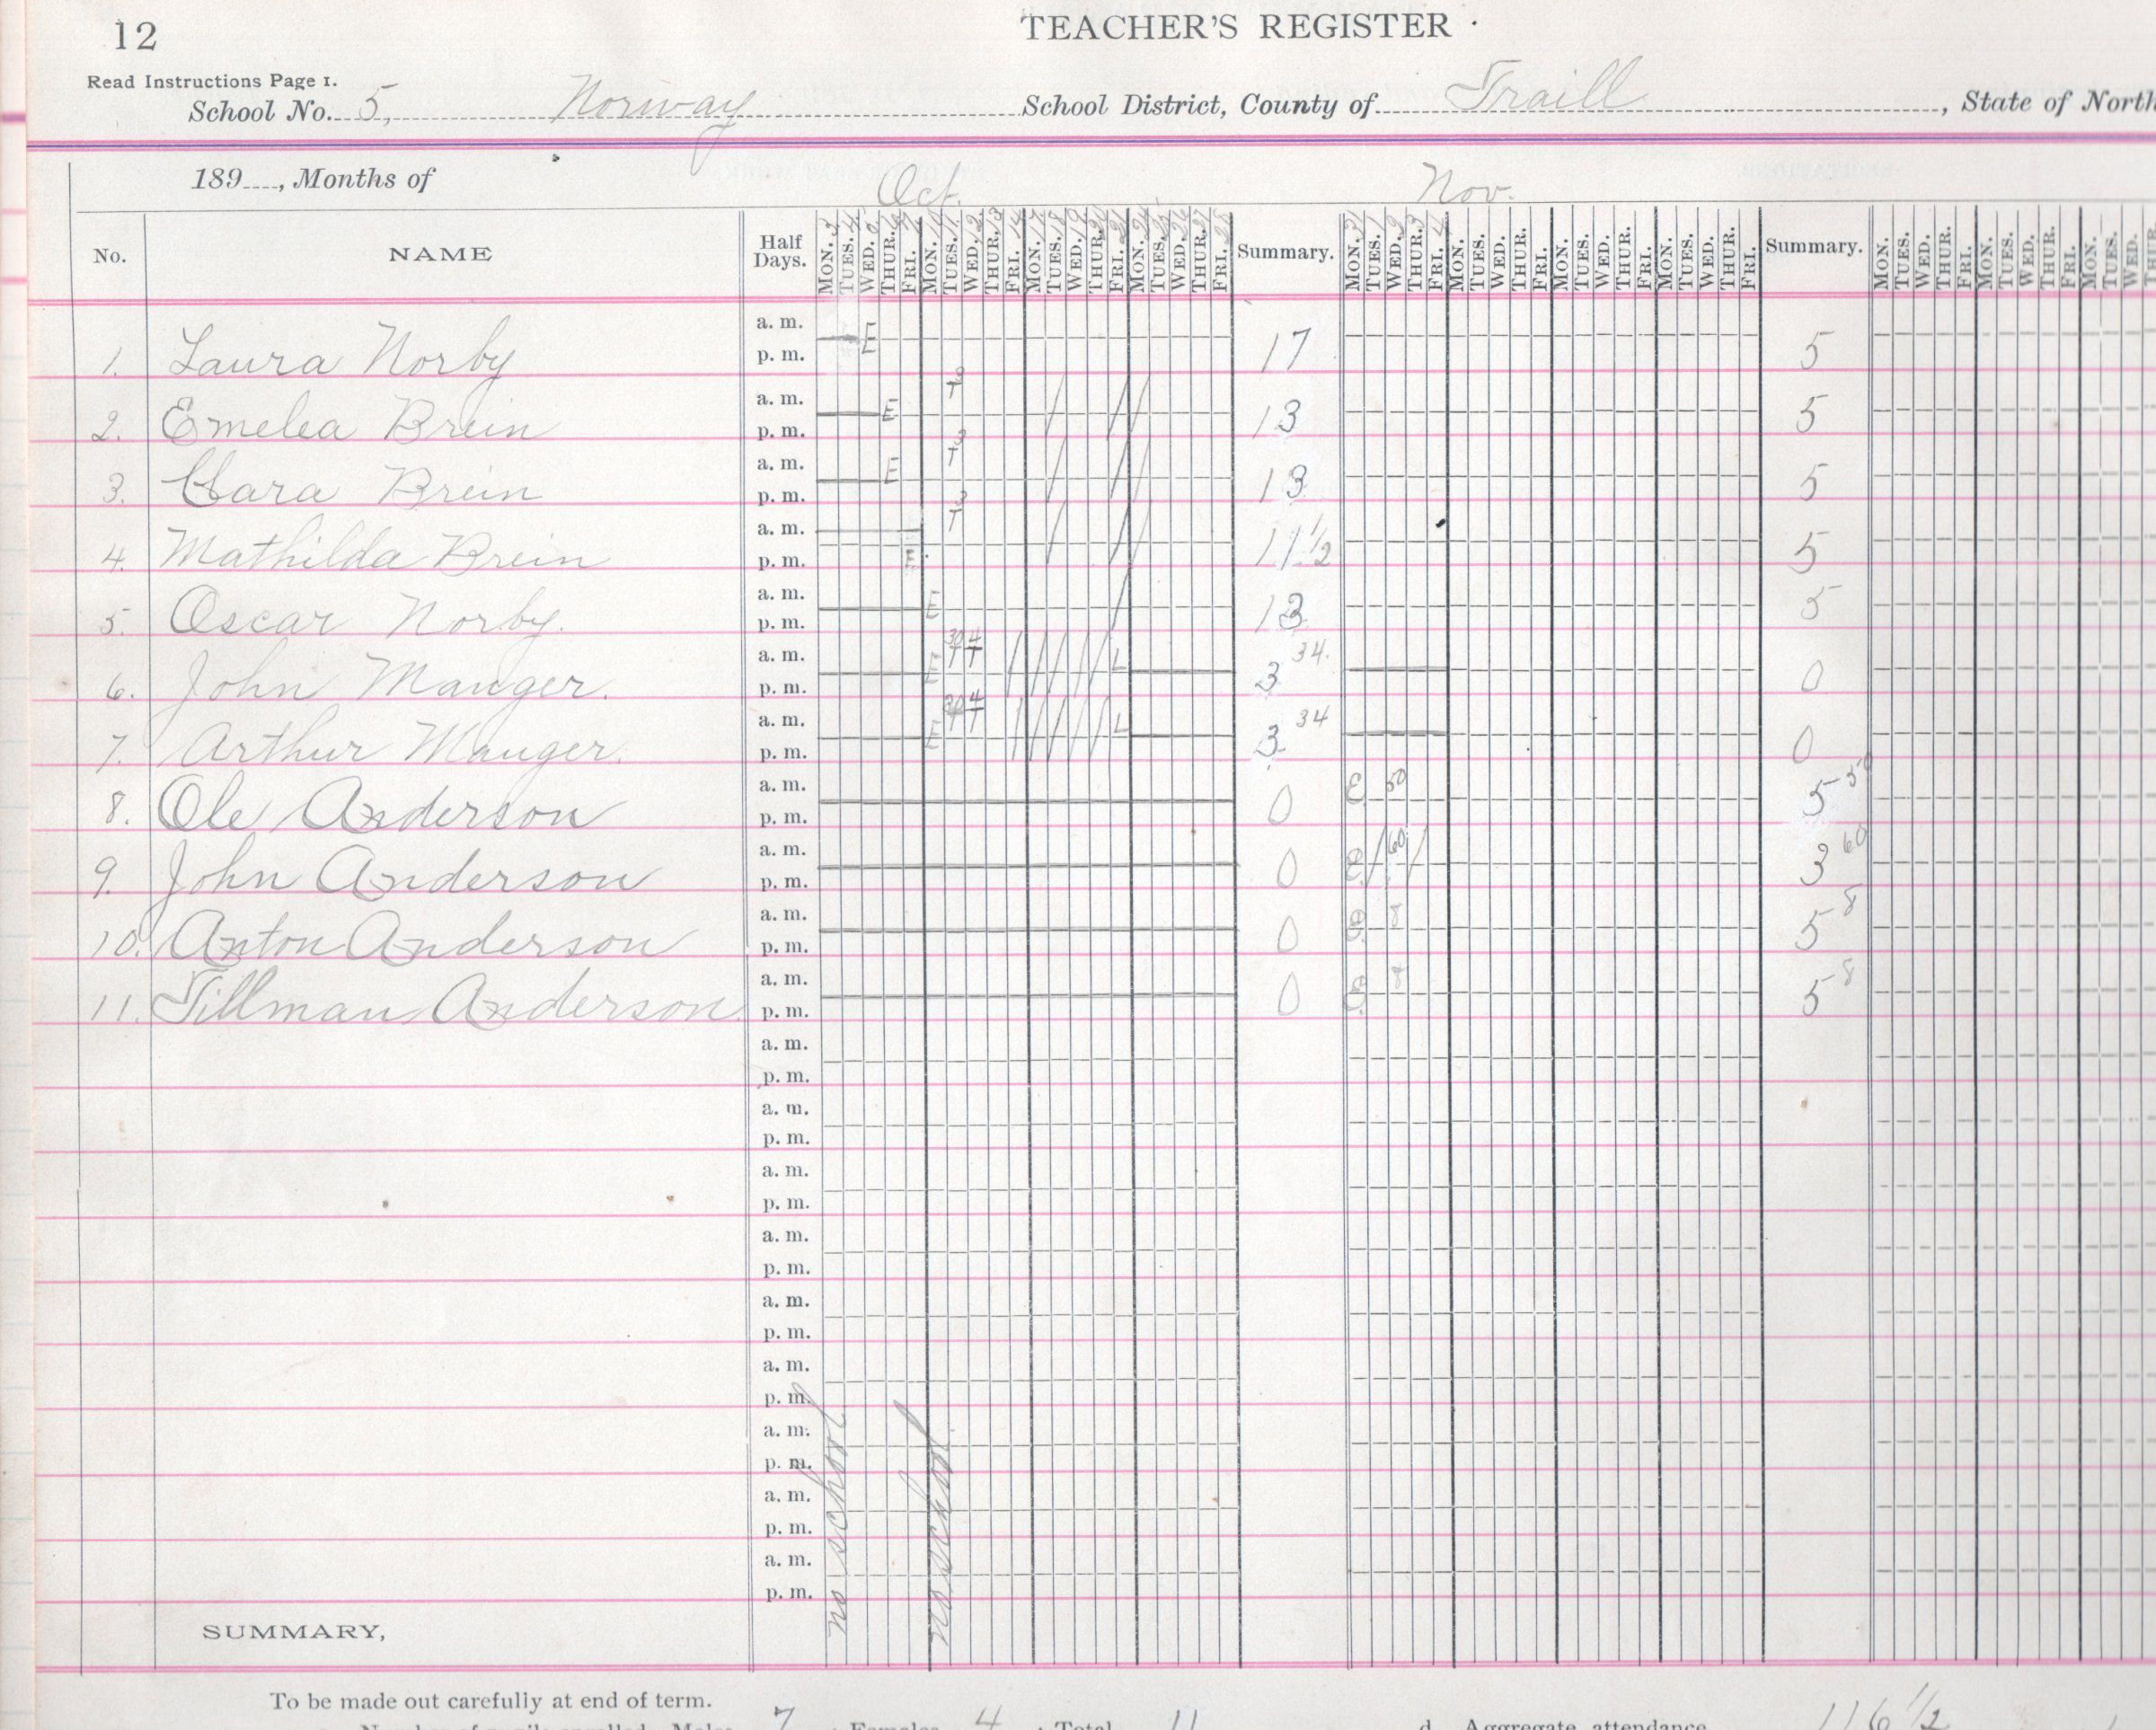 12
TEACHER'S REGISTER
Read Instructions Page 1.
School No. 5, Norway School District, County of Traill, State of North
189, Months of Oct. Nov.
No. NAME Half Days. MON. 3 TUES. 4 WED. 5 THUR. 6 FRI. 7 MON. 10 TUES. 11 WED. 12 THUR. 13 FRI. 14 MON. 17 TUES. 18 WED. 19 THUR. 20 FRI. 21 MON. 24 TUES. 25 WED. 26 THUR. 27 FRI. 28 Summary. MON. 31 TUES. 1 WED. 2 THUR. 3 FRI. 4 MON. TUES. WED. THUR. FRI. MON. TUES. WED. THUR. FRI. MON. TUES. WED. THUR. FRI. Summary. MON. TUES. WED. THUR. FRI. MON. TUES. WED. THUR. FRI. MON. TUES. WED. THUR.
1. Laura Norby a. m. p. m. E 17 5
2. Emelea Brein a. m. p. m. E T3 13 5
3. Clara Brein a. m. p. m. E T3 13 5
4. Mathilda Brein a. m. p. m. E T3 11 1/2 5
5. Oscar Norby. a. m. p. m. E 13 5
6. John Manger. a. m. p. m. E 30 T 4 T L 3 34. 0
7. Arthur Manger. a. m. p. m. E 30 T 4 T L 3 34 0
8. Ole Anderson a. m. p. m. 0 E 50 5 50
9. John Anderson a. m. p. m. 0 E 60 3 60
10. Anton Anderson a. m. p. m. 0 E 8 5 8
11. Tillman Anderson a. m. p. m. 0 E 8 5 8
a. m.
p. m.
a. m.
p. m.
a. m.
p. m.
a. m.
p. m.
a. m.
p. m.
a. m.
p. m.
a. m.
p. m.
a. m.
p. m.
a. m.
p. m.
no school no school
SUMMARY,
To be made out carefully at end of term.
Number of pupils enrolled, Males 7; Females 4; Total 11 d. Aggregate attendance 116 1/2